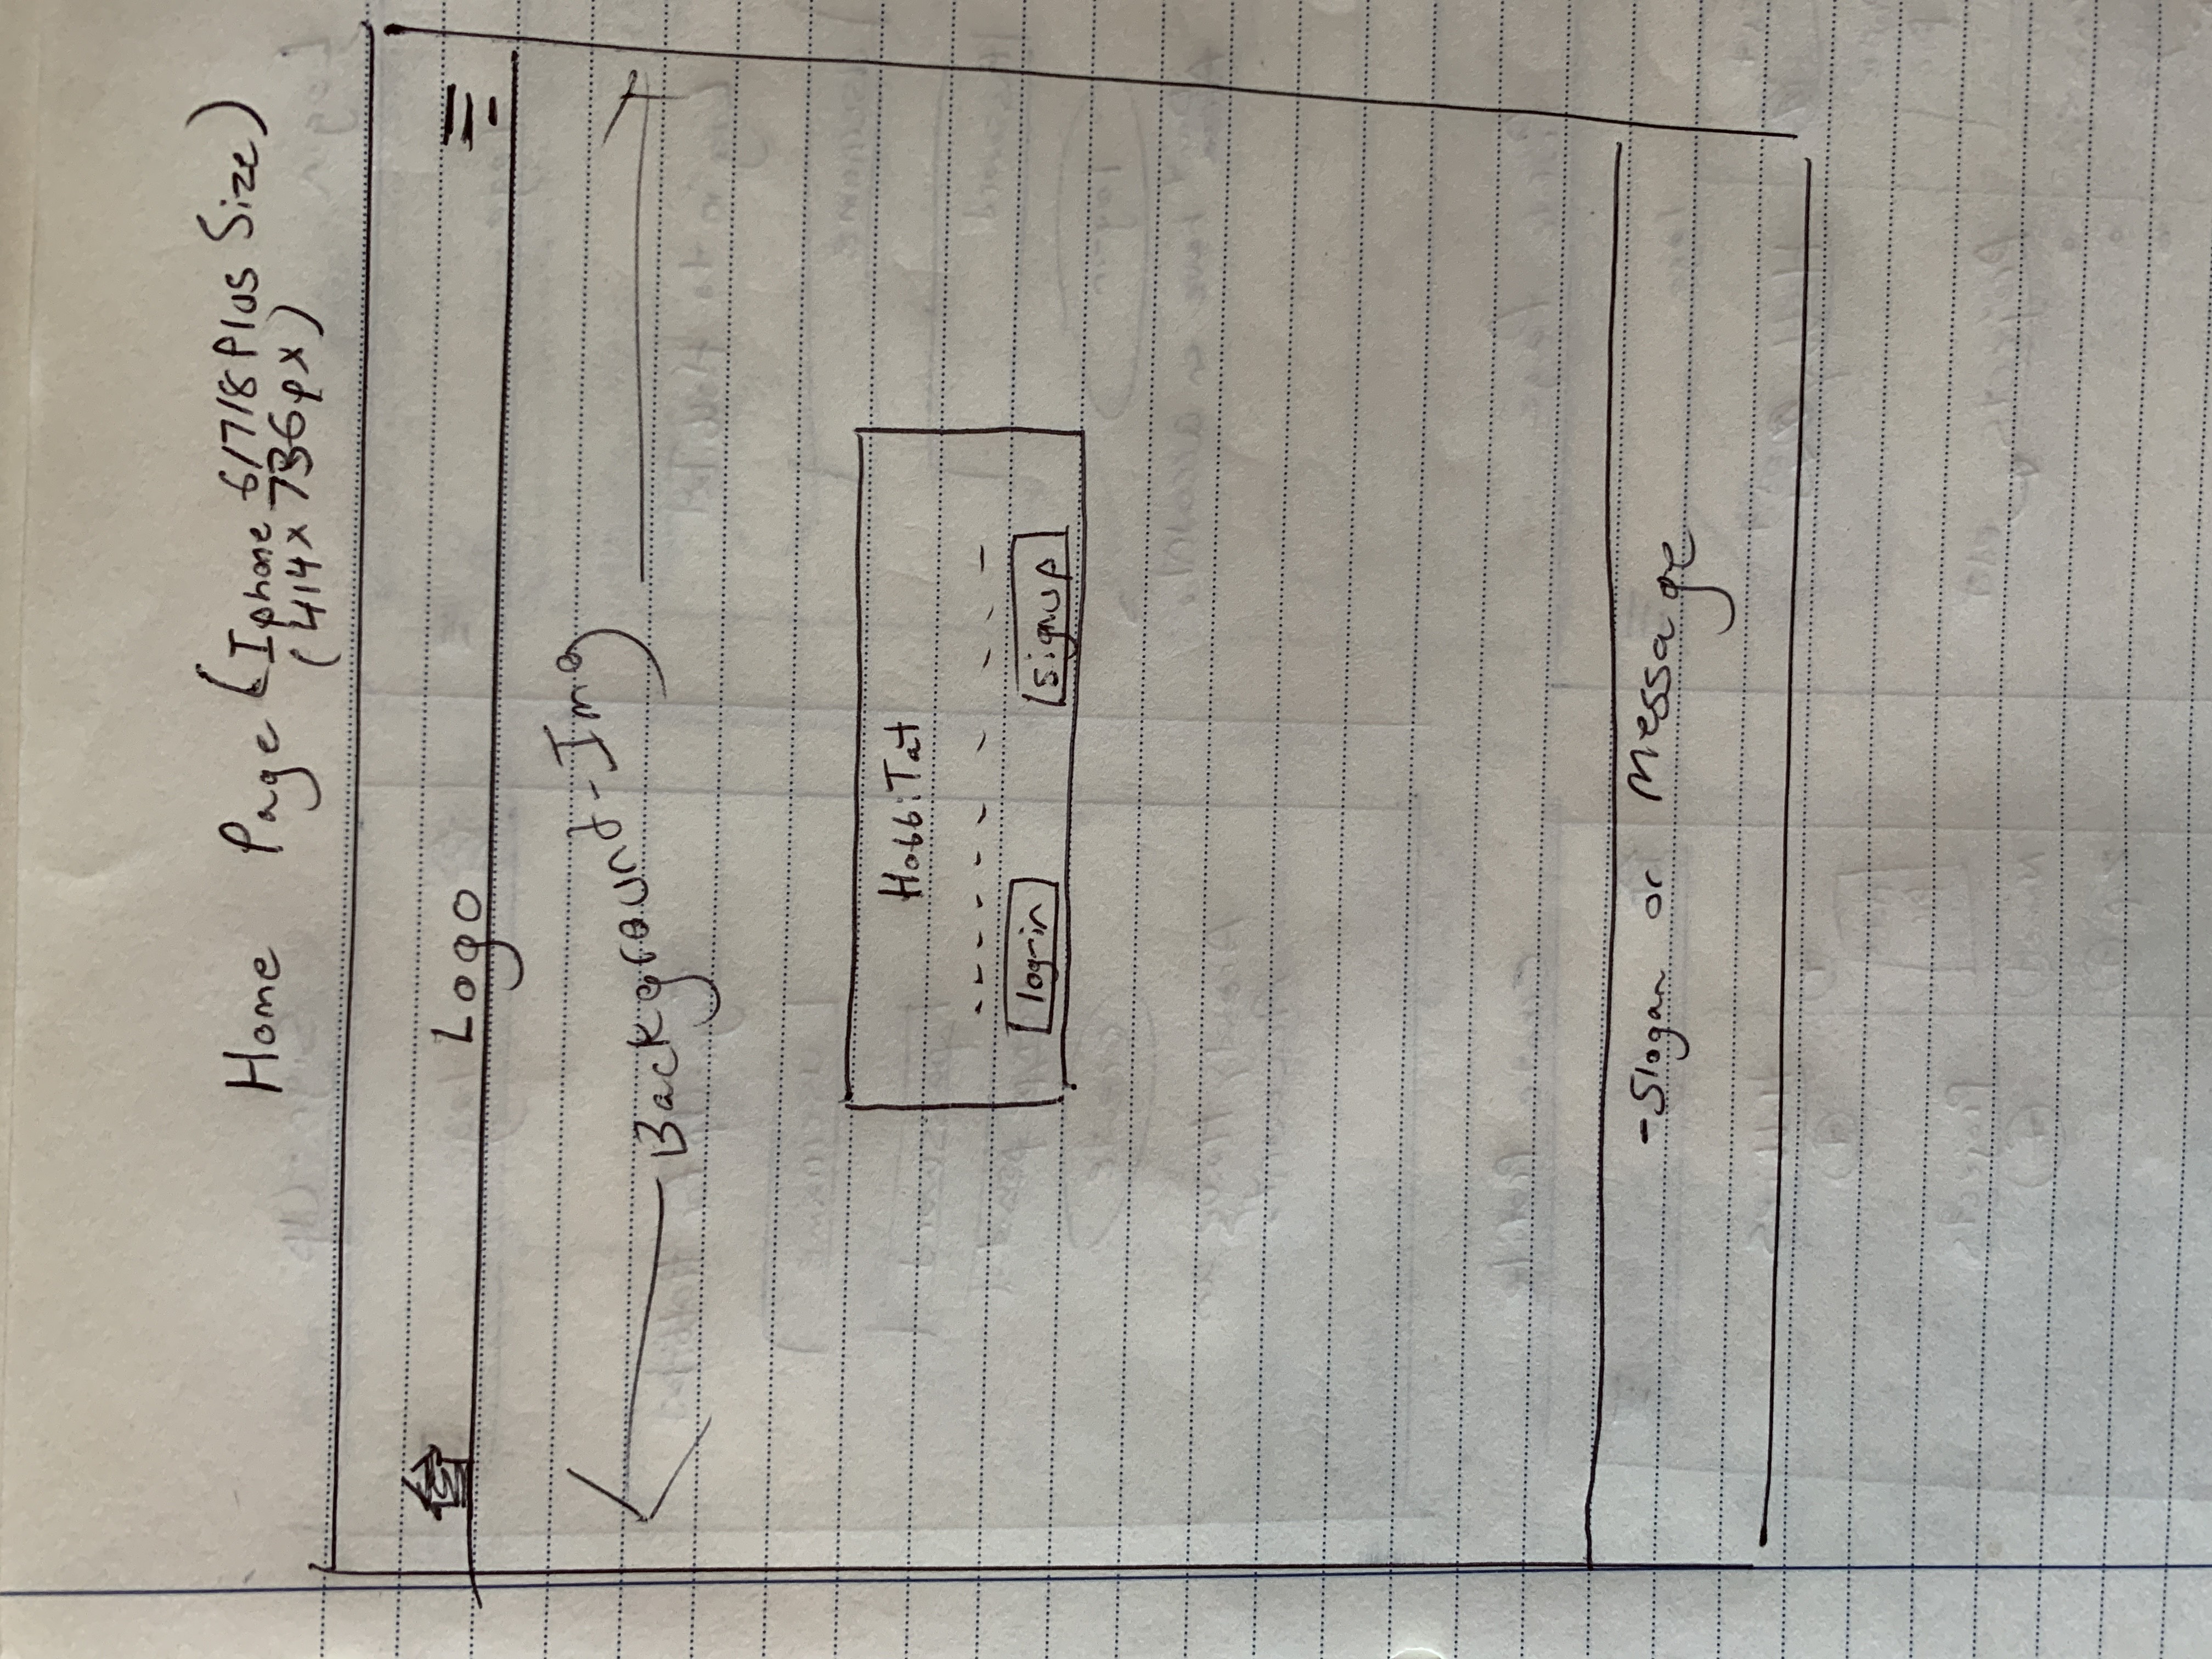 Home Page (Iphone 6/7/8 Plus Size)
(414x736px)
Logo
Background-Img
HobbiTat
log-in
signup
-Slogan or Message